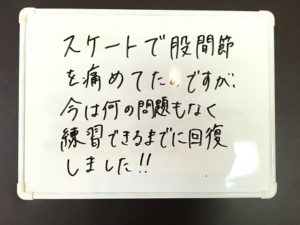 スケートで股関節
を痛めてたのですが、
今は何の問題もなく
練習できるまでに回復
しました!!